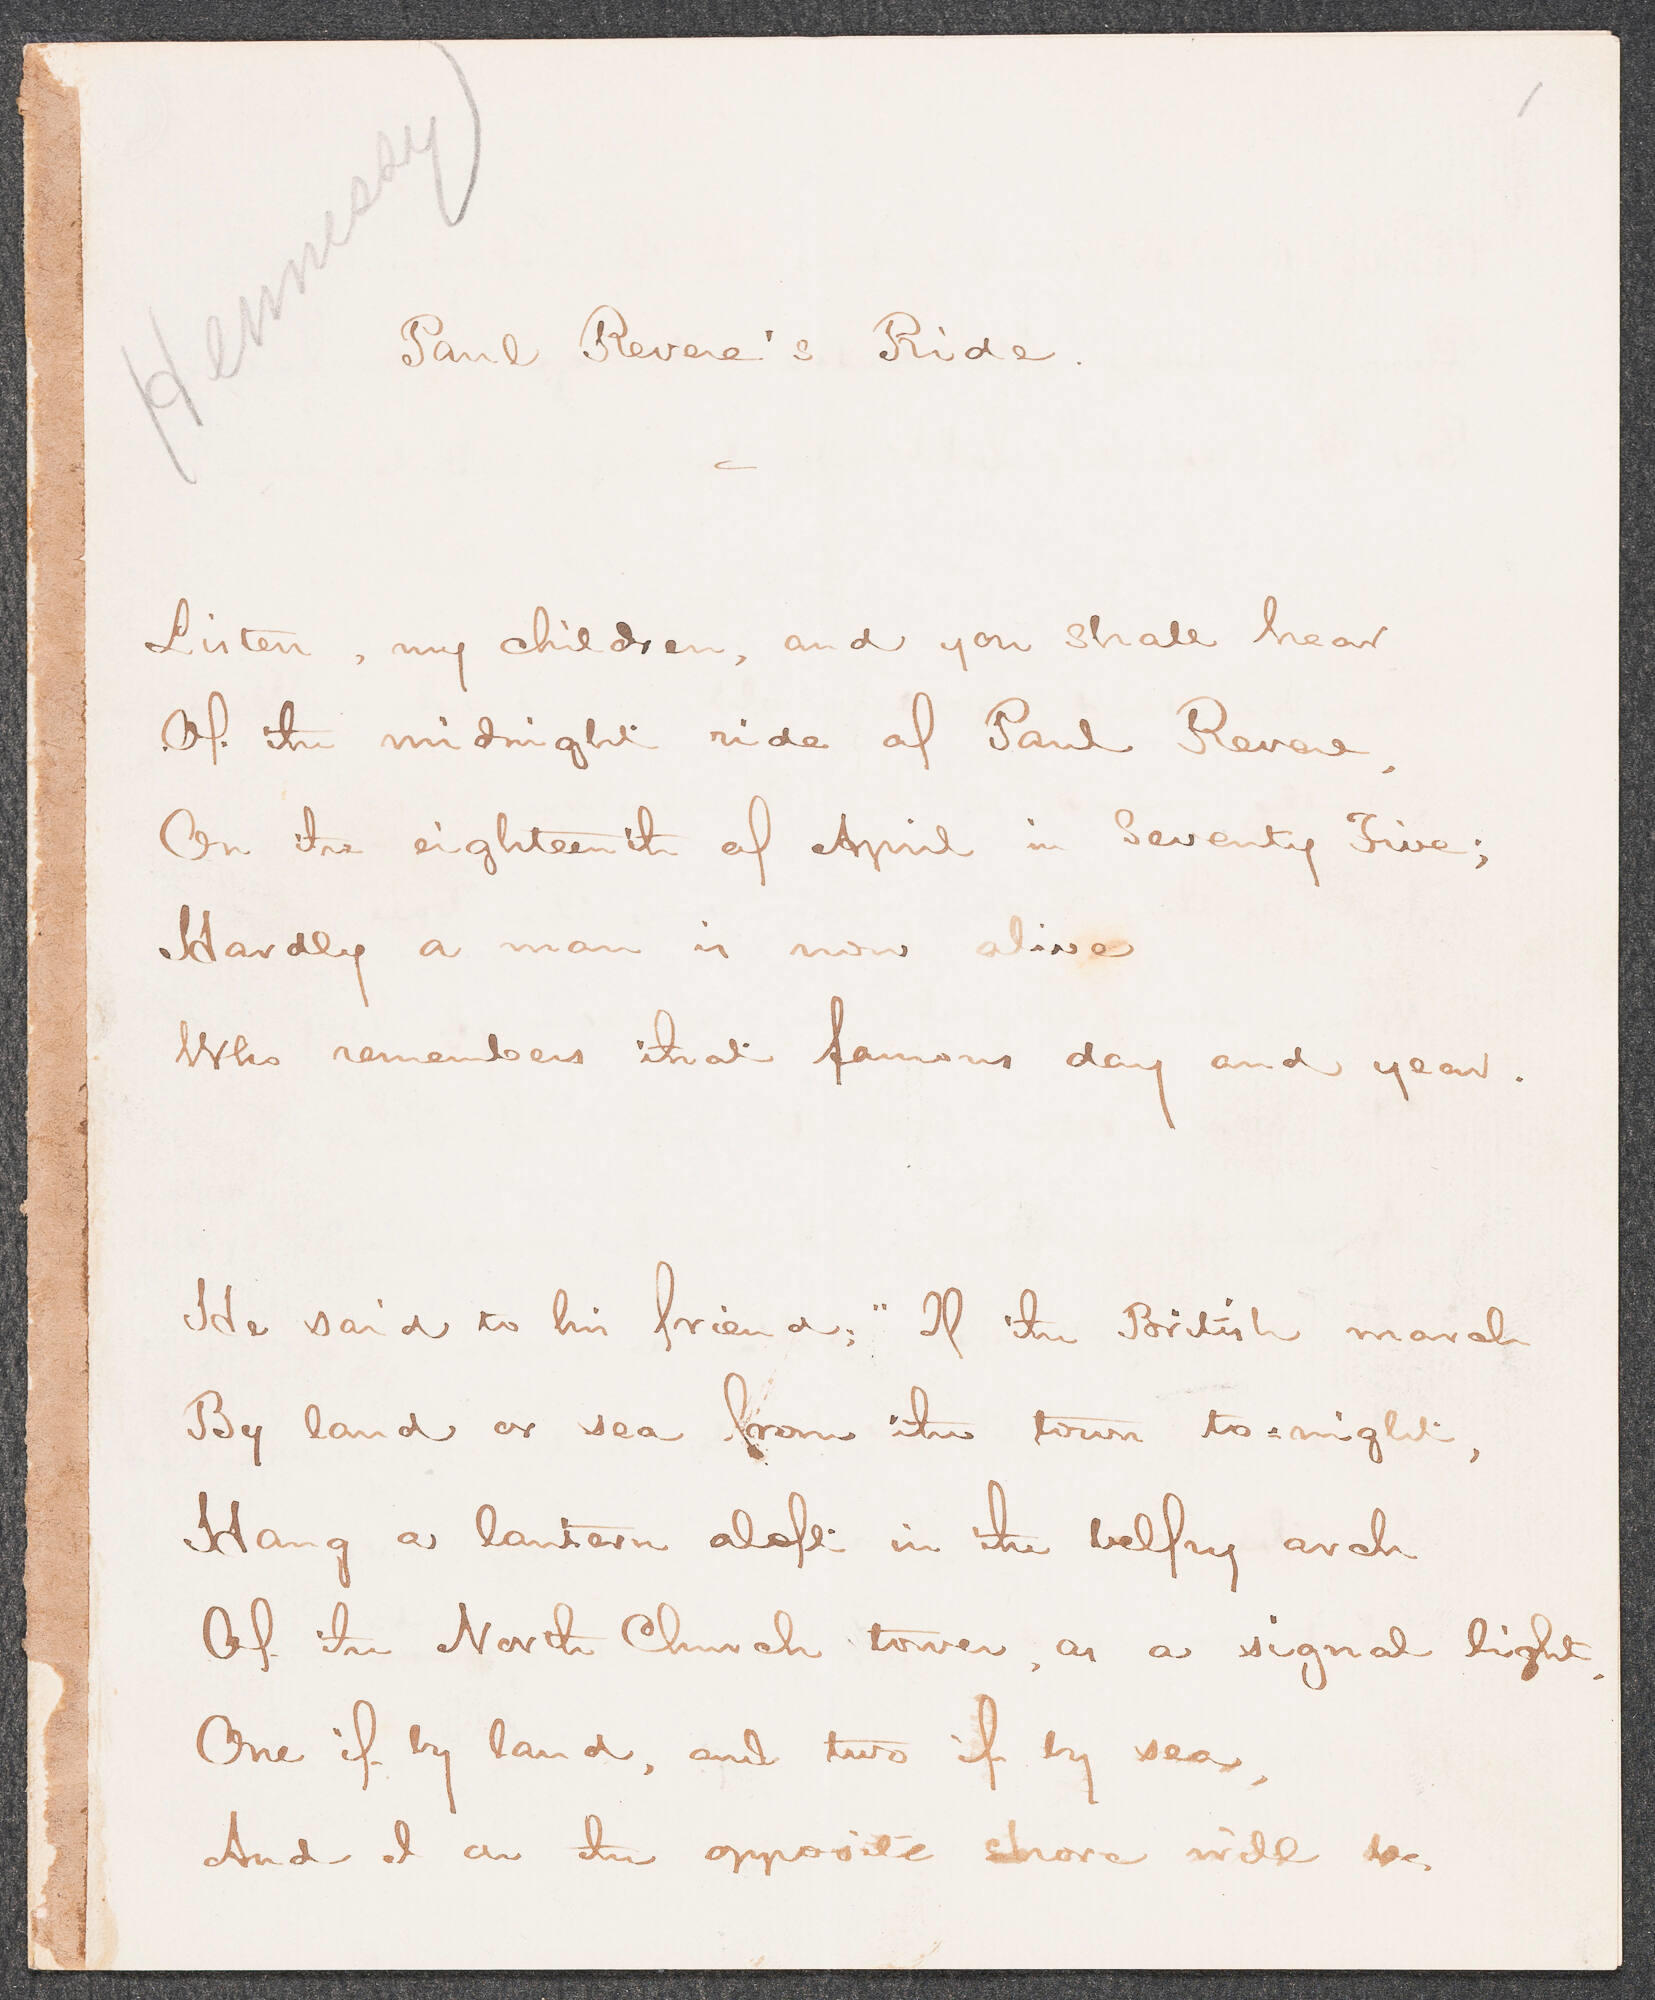 Hennessy)
Paul Revere's Ride.
Listen, my children, and you shall hear
Of the midnight ride of Paul Revere,
On the eighteenth of April in Seventy Five;
Hardly a man is now alive
Who remembers that famous day and year.
He said to his friend; "If the British march
By land or sea from the town to=night,
Hang a lantern aloft in the belfry arch
Of the North Church tower, as a signal light,
One if by land, and two if by sea,
And I on the opposite shore will be,